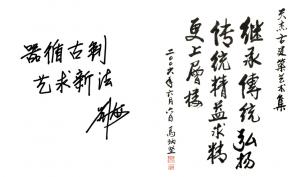 天杰古建筑艺术集
继承传统弘扬
传统精益求精
更上层楼
二〇〇六年六月六日马炳坚
器循古制
艺术新法